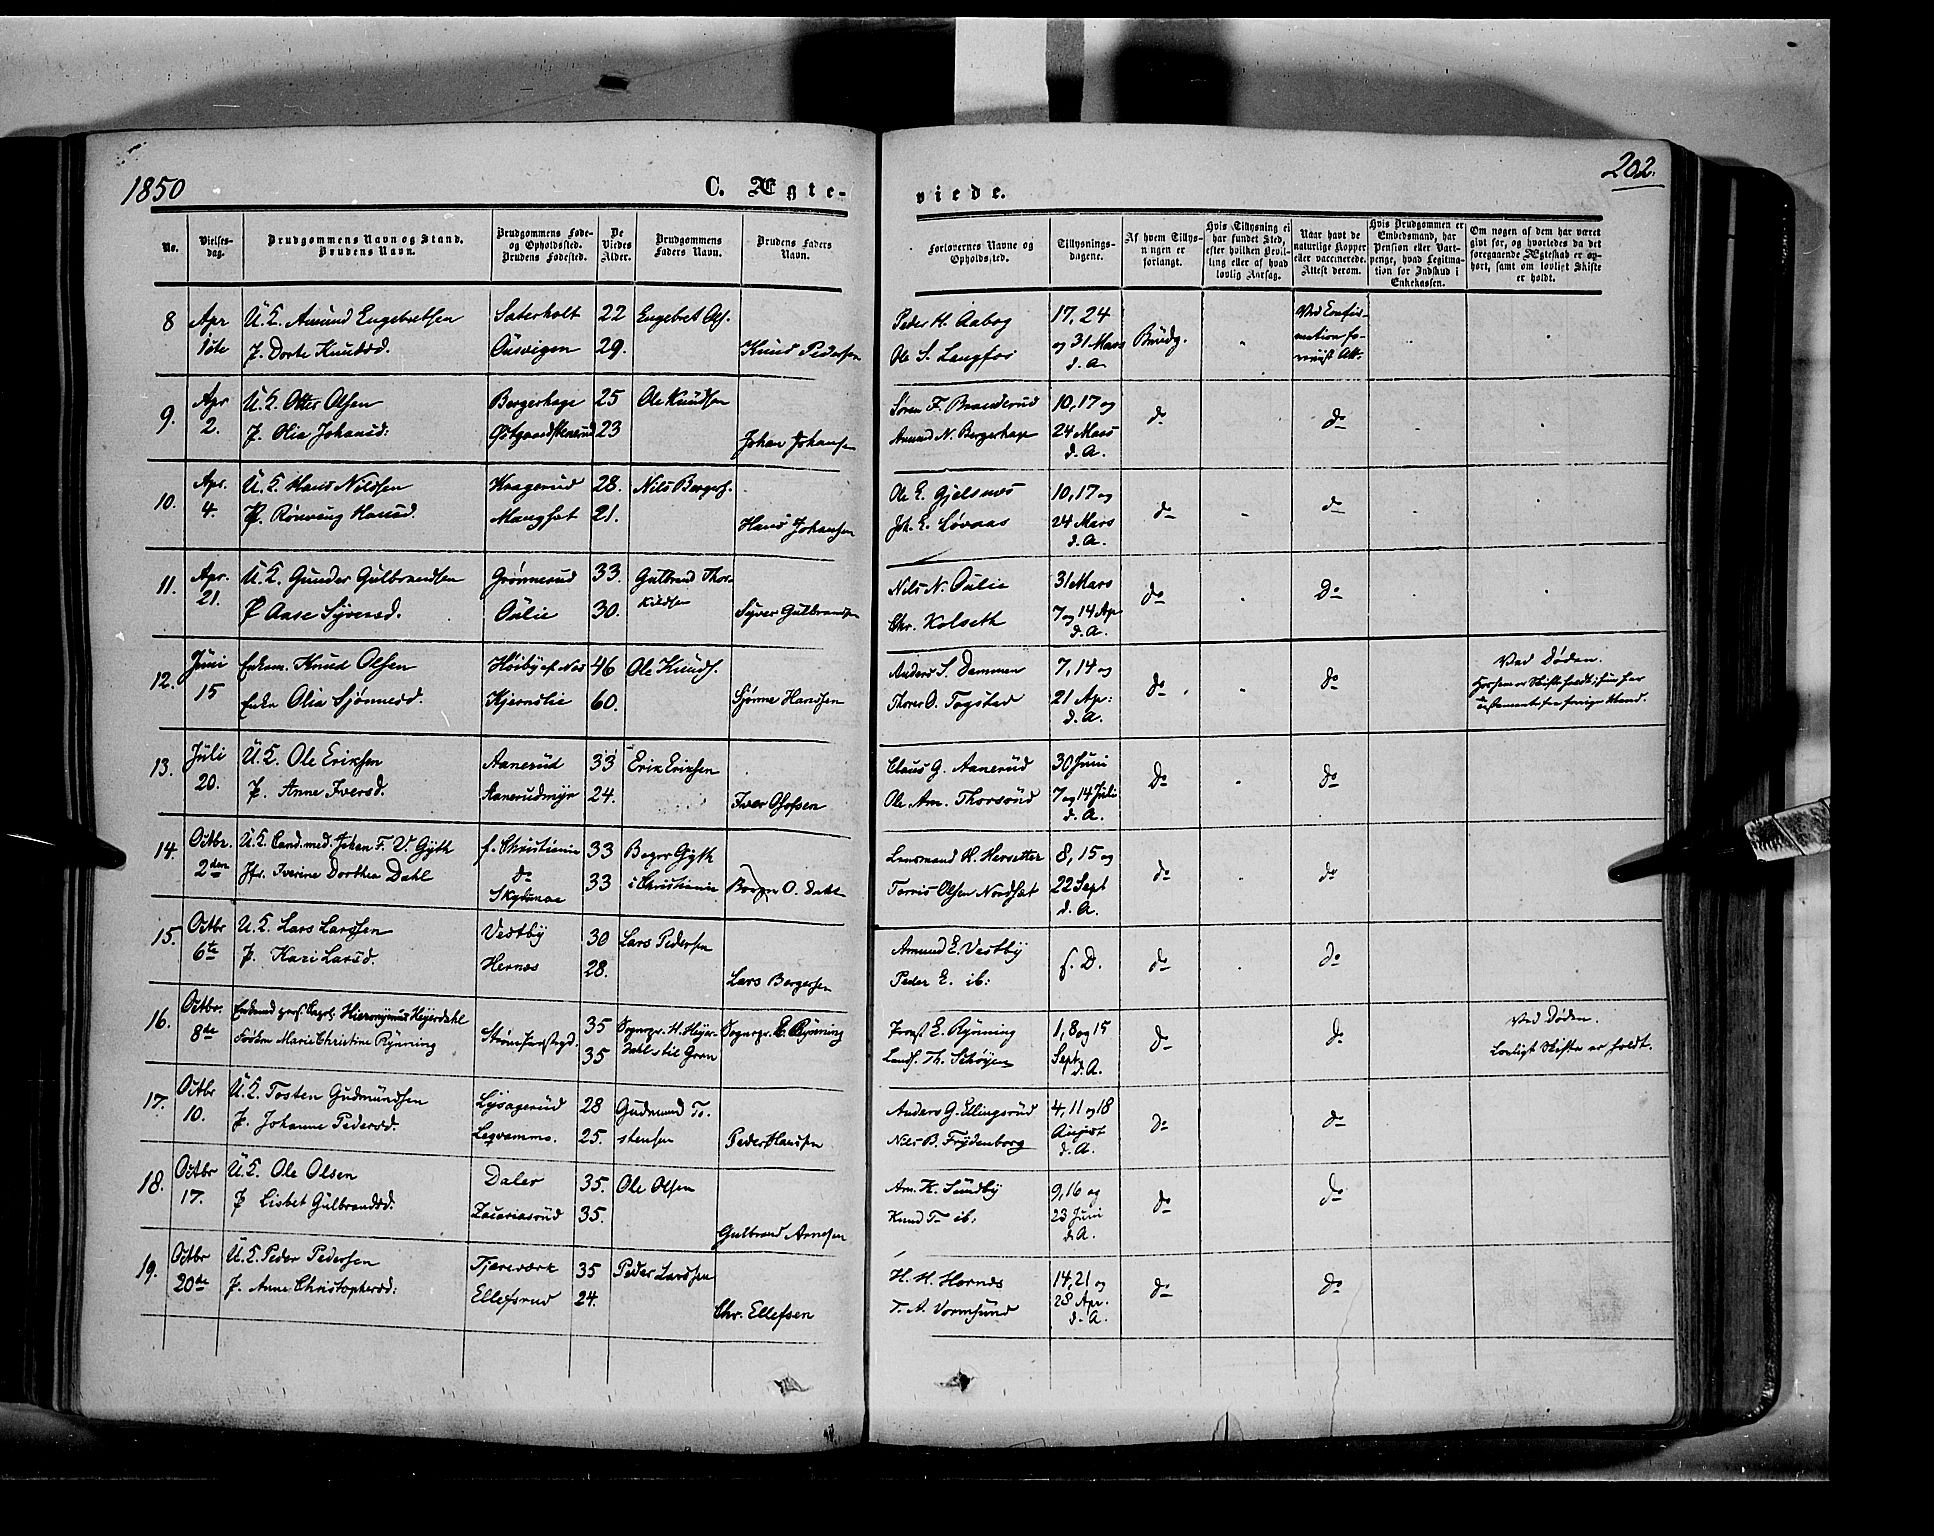 1850
C. Ægte-
viede.
202.
No.
Vielses-
dag.
Brudgommens Navn og Stand.
Brudens Navn.
Brudgommens Føde-
og Opholdssted.
Brudens Fødested.
De
Viedes
Alder.
Brudgommens
Faders Navn.
Brudens Faders
Navn.
Forlovernes Navne og
Opholdssted.
Tillysnings-
dagene.
Af hvem Tillys-
ningen er
forlangt.
Hvis Tillysning ei
har fundet Sted,
efter hvilken Bevil-
ling eller af hvad
lovlig Aarsag.
Naar havt de
naturlige Kopper
eller vaccinerede.
Attest derom.
Hvis Brudgommen er
Embedsmand, har
Pension eller Vart-
penge, hvad Legitima-
tion for Indskud i
Enkekassen.
Om nogen af dem har været
gift før, og hvorledes da det
foregaaende Ægteskab er op-
hørt, samt om lovligt Skifte
er holdt.
8 Apr U.K. Amund Engebretsen Saterholt 22 Engebret Ols. Peder H. Aabog 17, 24 Ved Confir-
1ste P. Dorte Knudsd. Ousvigen 29. Knud Pedersen Ole S. Langfos og 31 Mars Brudg. mation
d. A.
9. Apr U.K. Otter Olsen Bergerhage 25 Ole Knudsen Søren F. Branderud 10, 17 og
2. P. Olia Johansd: 23 Johan Johansen Amund N. Bergerhage 24 Mars do do
d. A.
10. Apr. U.K. Hans Nilssen Kragerud 28. Nils Bergers. Ole E. Gjelsnes 10, 17 og
4. P. Rønnaug Hansd. Mangset 21. Hans Johansen Joh. E. Løvaas 24 Mars do do
d. A.
11. Apr. U.K. Gunder Gulbrandsen Grønnerud 33. Gulbrand Thor- Nils N. Oulie 31 Mars
21. P Aase Syversd. Oulie 30. kildsen Syver Gulbrandsen Chr. Kolseth 7 og 14 Ap do Do
d. A.
12. Juni Enkem. Knud Olsen Høiby af Nes 46 Ole Knuds. Anders S. Dammen 7, 14 og Ved Døden.
15 Enke Olia Sjønnesd. Kjernslie 60. Sjønne Hansen Thorer O. Togstad 21 Ap: do do
d. A.
13. Juli U.K. Ole Eriksen Aanerud 33 Erik Eriksen Claus G. Aanerud 30 Juni
20. P. Anne Iversd. Aanerudmyr 24. Iver Olofsen Ole Am. Thorsrud 7 og 14 Juli Do do
d. A.
14. Octbr. U.K. Cand. med. Johan F. V. Gyth f. Christiania 33 Bager Gyth Lensmand H. Hersetter 8, 15 og
2den Jfr. Iverine Dorthea Dahl do 33 i Christiania O. Dahl Torris Olsen Nordset 22 Sept do do
Skydsnæs d. A.
15. Octbr U.K. Lars Larssen Vestby 30 Lars Pedersen Amund E. Vestby
6te P. Kari Larsd. Hernæs 28. Lars Bergersen Peder E. ib: f. D. do do
16. Octbr. Hieronymus Heyerdahl 35 Sognepr. H. Heyer- Sognepr. E. Rynning Ernst E. Rynning 1, 8 og 15 Ved Døden.
8de Frøken Marie Christine Rynning 35 dahl til Gran Th. Schøyen Sept do do Lovligt Skifte er holdt.
d. A.
17. Octbr U.K. Tosten Gudmundsen Lysagerud 28 Gudmund To- Anders G. Ellingsrud 4, 11 og 18
10. P. Johanne Pedersd. 25. stensen Peder Hansen Nils B. Frydenborg August do do
d. A.
18. Octbr U.K. Ole Olsen Daler 35. Ole Olsen Am. K. Sundby 9, 16 og
17. P Lisbet Gulbrandsd. Zacariasrud 35. Gulbrand Arnesen Knud T. ib: 23 Juni do do
d. A.
19. Octbr U.K. Peder Pedersen 35 Peder Larssen H. H. Hernæs 14, 21 og
20de P. Anne Christophersd: Ellefsrud 24. Chr. Ellefsen T. A. Vormsund 28 Apr. do do
d. A.